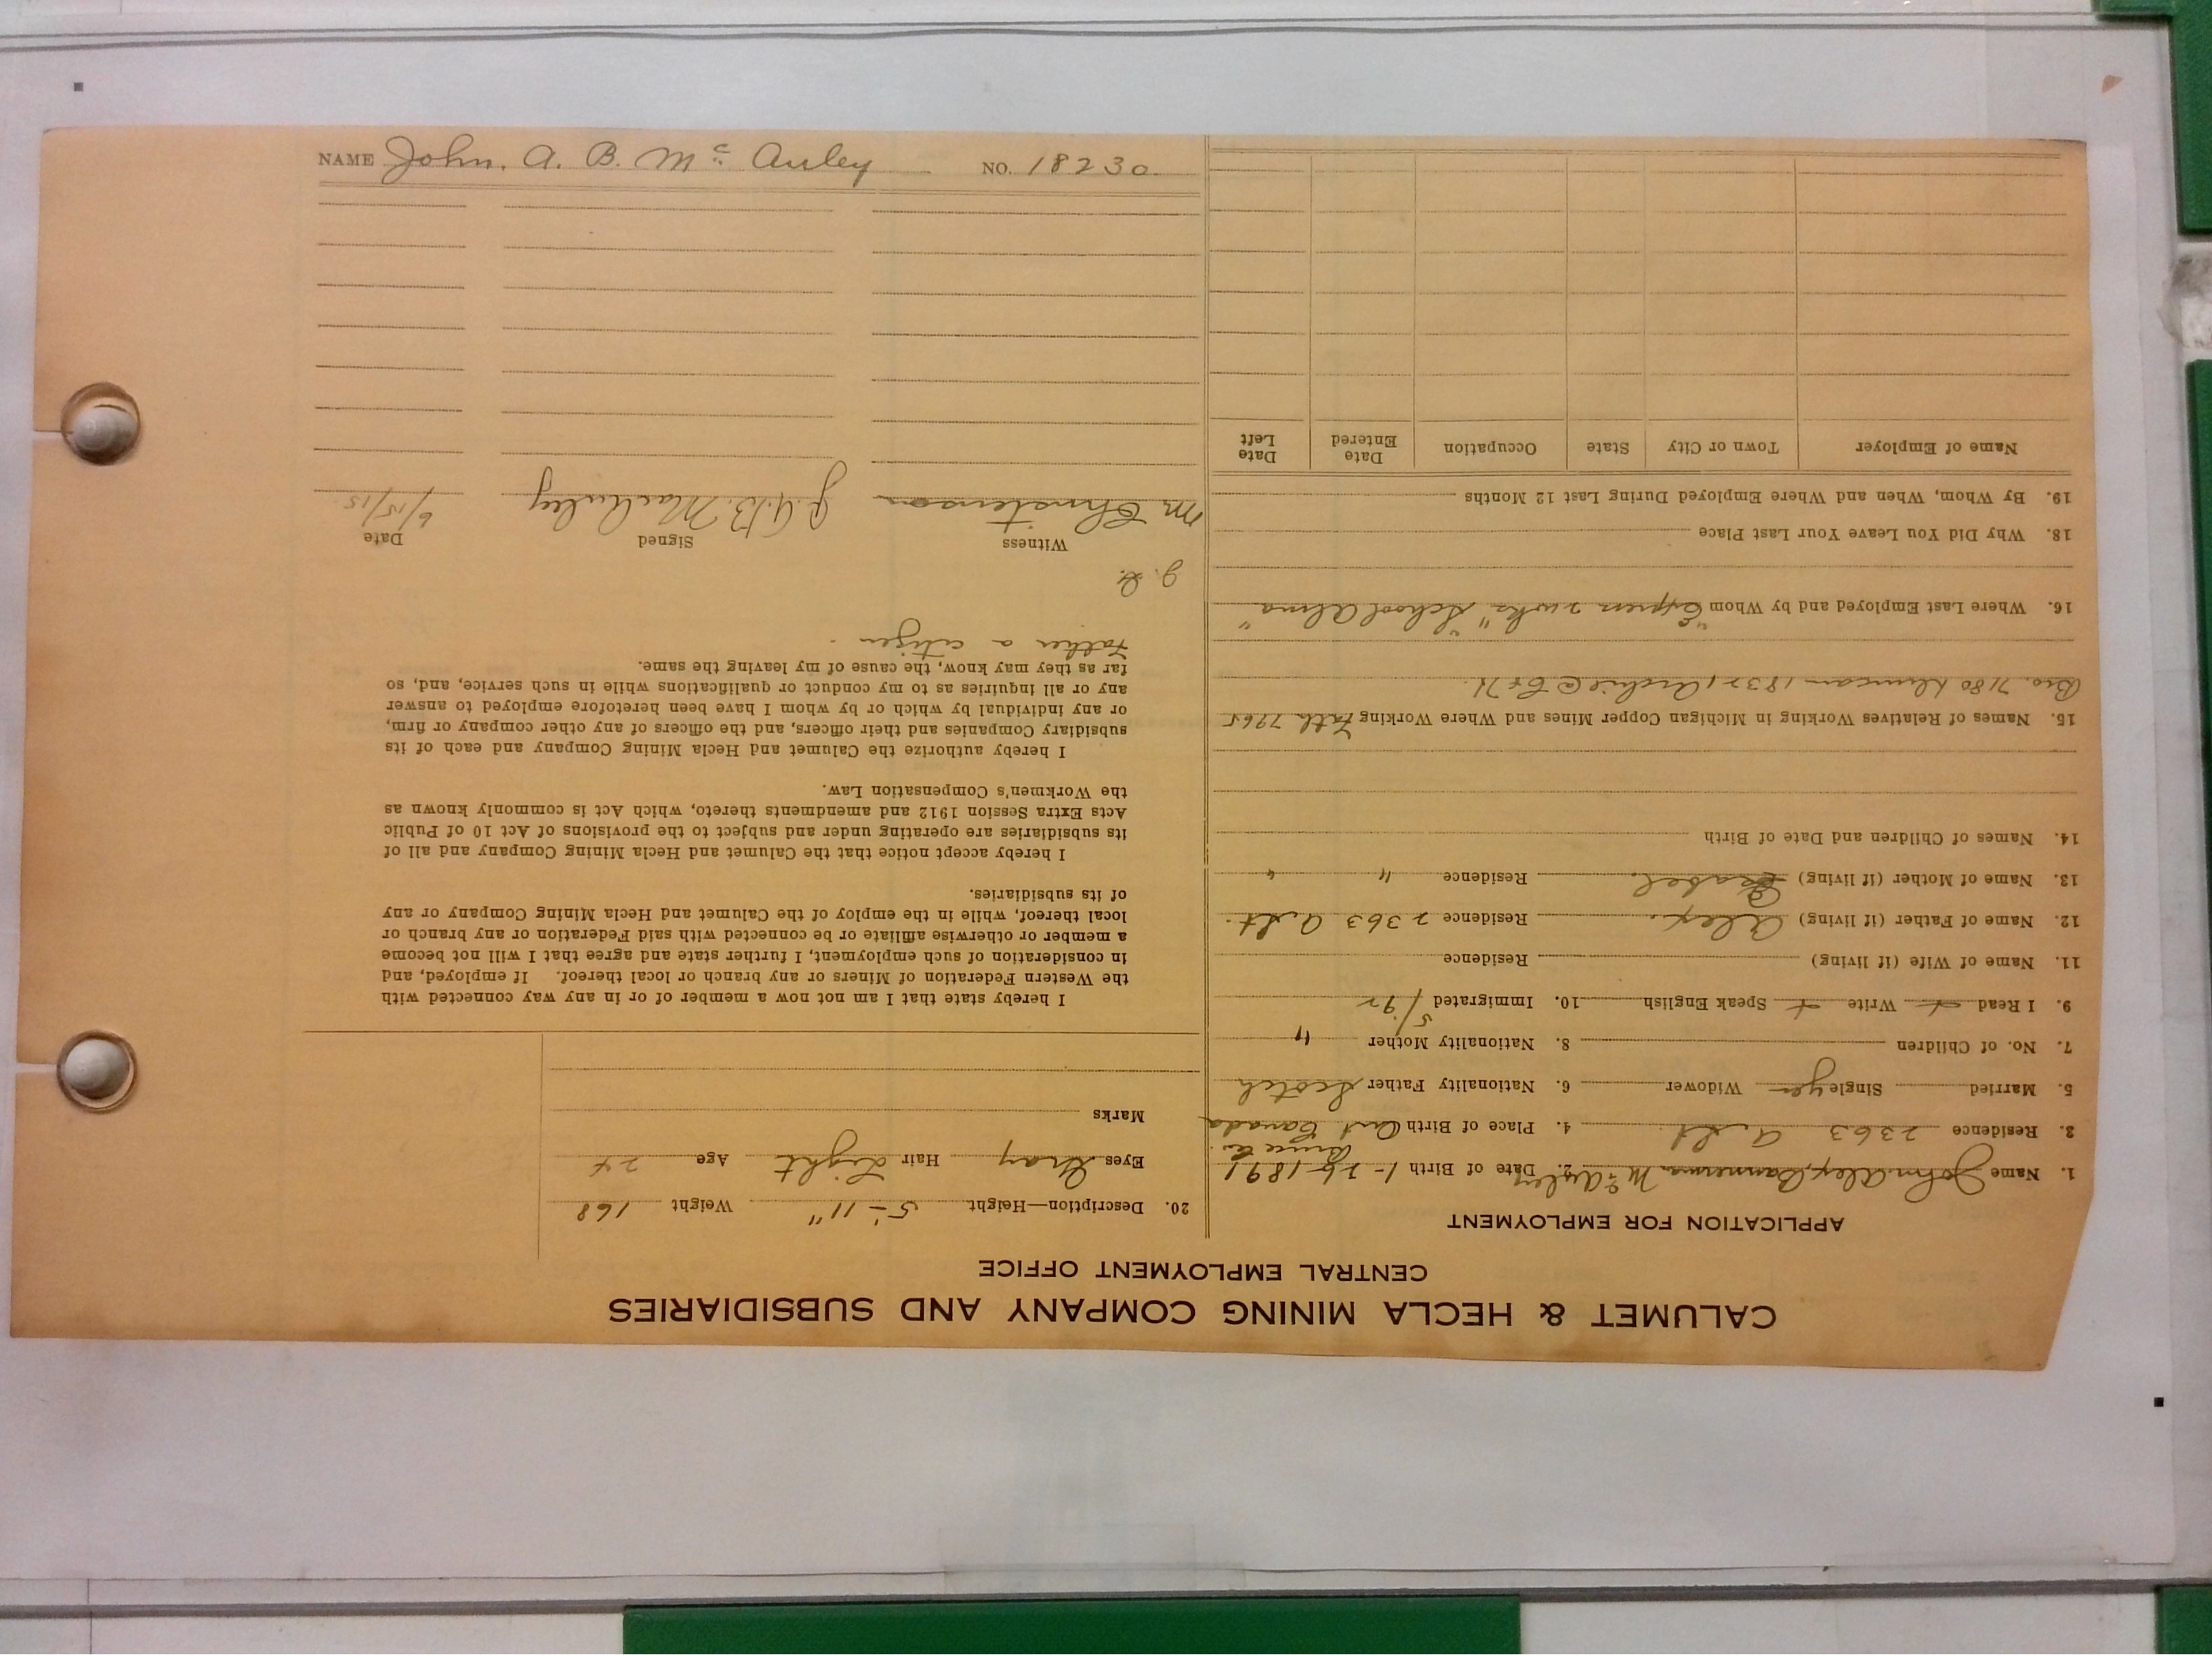 CALUMET & HECLA MINING COMPANY AND SUBSIDIARIES
CENTRAL EMPLOYMENT OFFICE
APPLICATION FOR EMPLOYMENT
1. Name John Alex. Bannerman McAuley 2. Date of Birth 1-26-1891
Bruce Co.
3. Residence 2363 A. St. 4. Place of Birth Ont Canada
5. Married Single yes Widower 6. Nationality Father Scotch
7. No. of Children 8. Nationality Mother "
9. I Read Write Speak English 10. Immigrated 5/92
11. Name of Wife (if living) Residence
12. Name of Father (if living) Alex. Residence 2363 A. St.
13. Name of Mother (if living) Residence " "
14. Names of Children and Date of Birth
15. Names of Relatives Working in Michigan Copper Mines and Where Working Fath 7965
Bro. 7180 Duncan 1832 Archie @
16. Where Last Employed and by Whom "Express 2 wks" "School Alma"
18. Why Did You Leave Your Last Place
19. By Whom, When and Where Employed During Last 12 Months
Name of Employer Town or City State Occupation Date Entered Date Left
20. Description—Height 5'-11" Weight 168
Eyes Gray Hair Light Age 24
Marks
I hereby state that I am not now a member of or in any way connected with
the Western Federation of Miners or any branch or local thereof. If employed, and
in consideration of such employment, I further state and agree that I will not become
a member or otherwise affiliate or be connected with said Federation or any branch or
local thereof, while in the employ of the Calumet and Hecla Mining Company or any
of its subsidiaries.
I hereby accept notice that the Calumet and Hecla Mining Company and all of
its subsidiaries are operating under and subject to the provisions of Act 10 of Public
Acts Extra Session 1912 and amendments thereto, which Act is commonly known as
the Workmen's Compensation Law.
I hereby authorize the Calumet and Hecla Mining Company and each of its
subsidiary Companies and their officers, and the officers of any other company or firm,
or any individual by which or by whom I have been heretofore employed to answer
any or all inquiries as to my conduct or qualifications while in such service, and, so
far as they may know, the cause of my leaving the same.
Father a citizen.
Witness Signed Date
M Christenson J. A. B. MacAuley 6/15/15
NAME John. A. B. Mc Auley NO. 18230